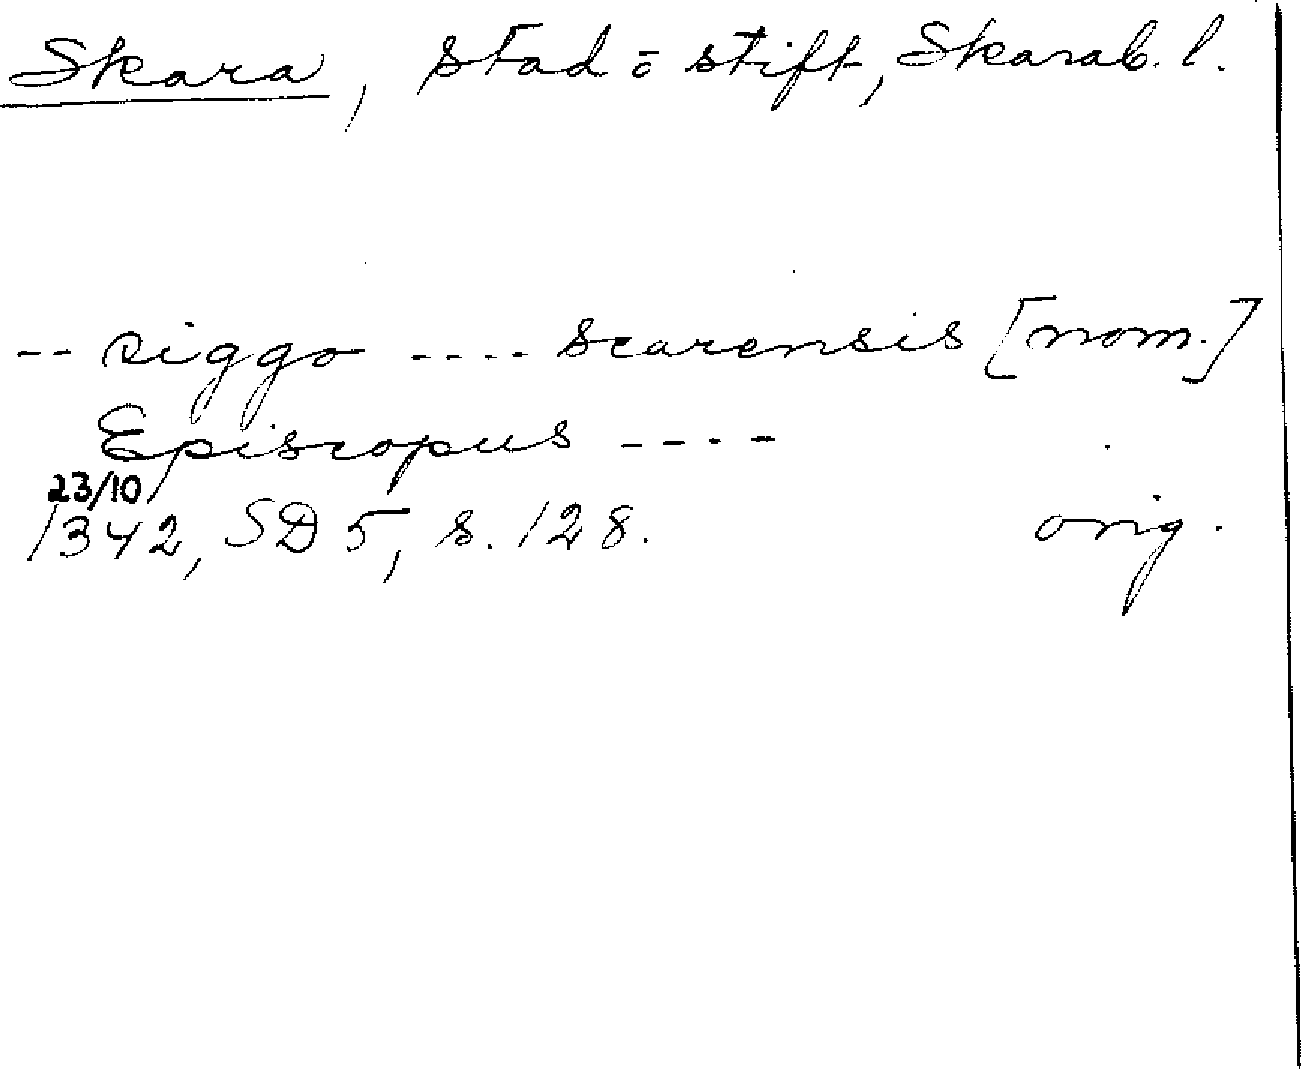 Skara, stad o stift, Skarab. l.
-- siggo ---- scarensis [nom.]
Episcopus ----
23/10
1342, SD 5, s. 128. orig.